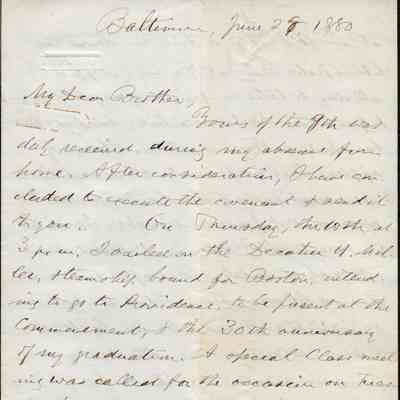 Baltimore, June 28, 1880
My Dear Brother,
Yours of the 9th was
duly received, during my absence from
home. After consideration, I have con-
cluded to execute the covenant & send it
to you. On Thursday, the 10th at
3 p.m. I sailed on the Decatur H. Mil-
ler, steamship bound for Boston, intend-
ing to go to Providence, to be present at the
Commencement, & the 30th anniversary
of my graduation. A special Class meet-
ing was called for the occasion on Tues-